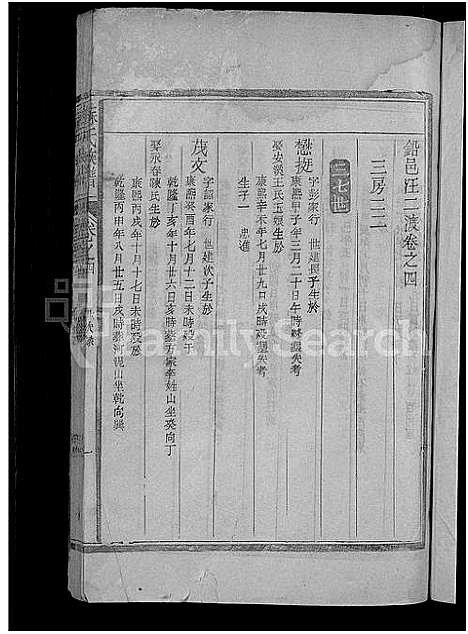 鉛邑汪二渡卷之四
三房二二
二七世
懋挺
字彭家行 世建長子生於
康熙甲子年三月二十日午時歿墓失考
娶安溪王氏玉娘生於
康熙辛未年七月廿九日戌時歿墓失考
生子一 忠進
茂文
字 家行 世建次子生於
康熙癸酉年七月十二日未時歿于
乾隆丁亥年十月廿六日亥時葬 家李姓山坐癸向丁
娶永春陳氏生於
康熙丙戌年十月十七日未時歿於
乾隆丙申年八月廿五日戌時葬河 山坐乾向巽
FamilySearch